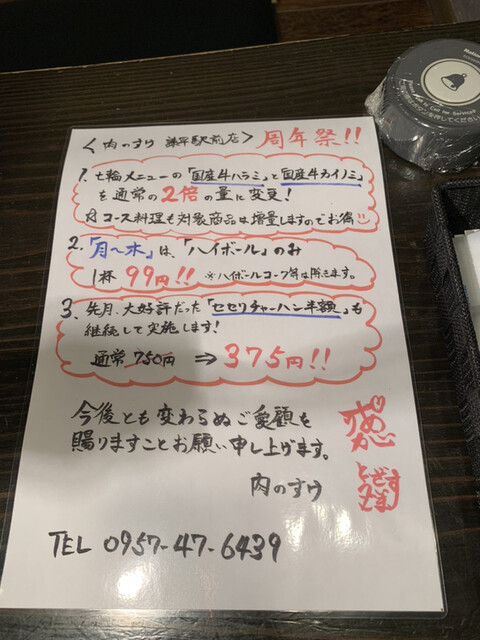 <肉のすけ 諫早駅前店> 周年祭!!
1. 七輪メニューの「国産牛ハラミ」と「国産牛カイノミ」
を通常の2倍の量に変更!
コース料理も対象商品は増量しますのでお得
2.「月〜木」は、「ハイボール」のみ
1杯 99円!! ※ハイボールコーク等は除きます。
3. 先月、大好評だった「セセリチャーハン半額」も
継続して実施します!
通常 750円 ⇒ 375円!!
今後とも変わらぬご愛顧を
賜りますことお願い申し上げます。
肉のすけ
TEL 0957-47-6439